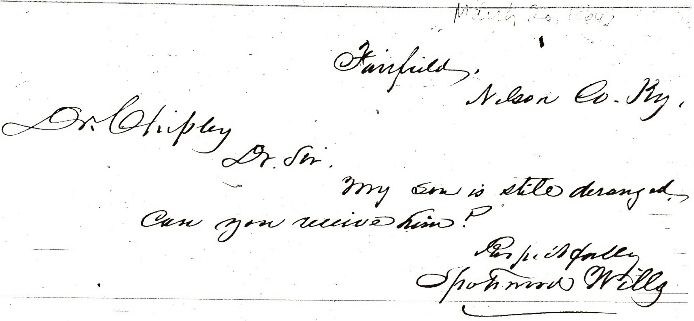 March
Fairfield,
Nelson Co. Ky.
Dr. Chipley
Dr. Sir.
My son is still deranged.
Can you receive him?
Respectfully
Spotswood Wills